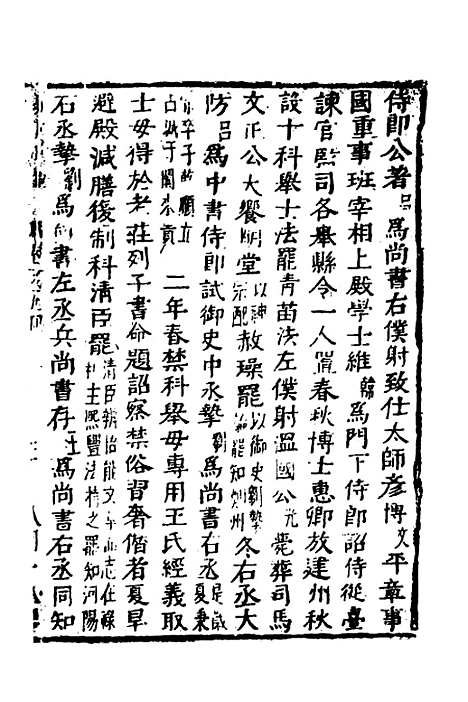 侍郎公著呂為尚書右僕射致仕太師彥博文平章事
國重事班宰相上殿學士維韓為門下侍郎詔侍從臺
諫官監司各舉縣令一人置春秋博士惠卿放建州秋
設十科舉士法罷青苗法左僕射溫國公光薨葬司馬
文正公大饗明堂以神宗配赦璪罷以御史劉摯論罷知鄭州冬右丞大
防呂為中書侍郎試御史中丞摯劉為尚書右丞是歲夏秉
常卒子乾順立于闐來貢二年春禁科舉毋專用王氏經義取
士毋得於老莊列子書命題詔察禁俗習奢僭者夏早
避殿減膳復制科清臣罷清臣 主熙豐法 之罷知河陽
右丞摯劉為尚書左丞兵尚書存王為尚書右丞同知